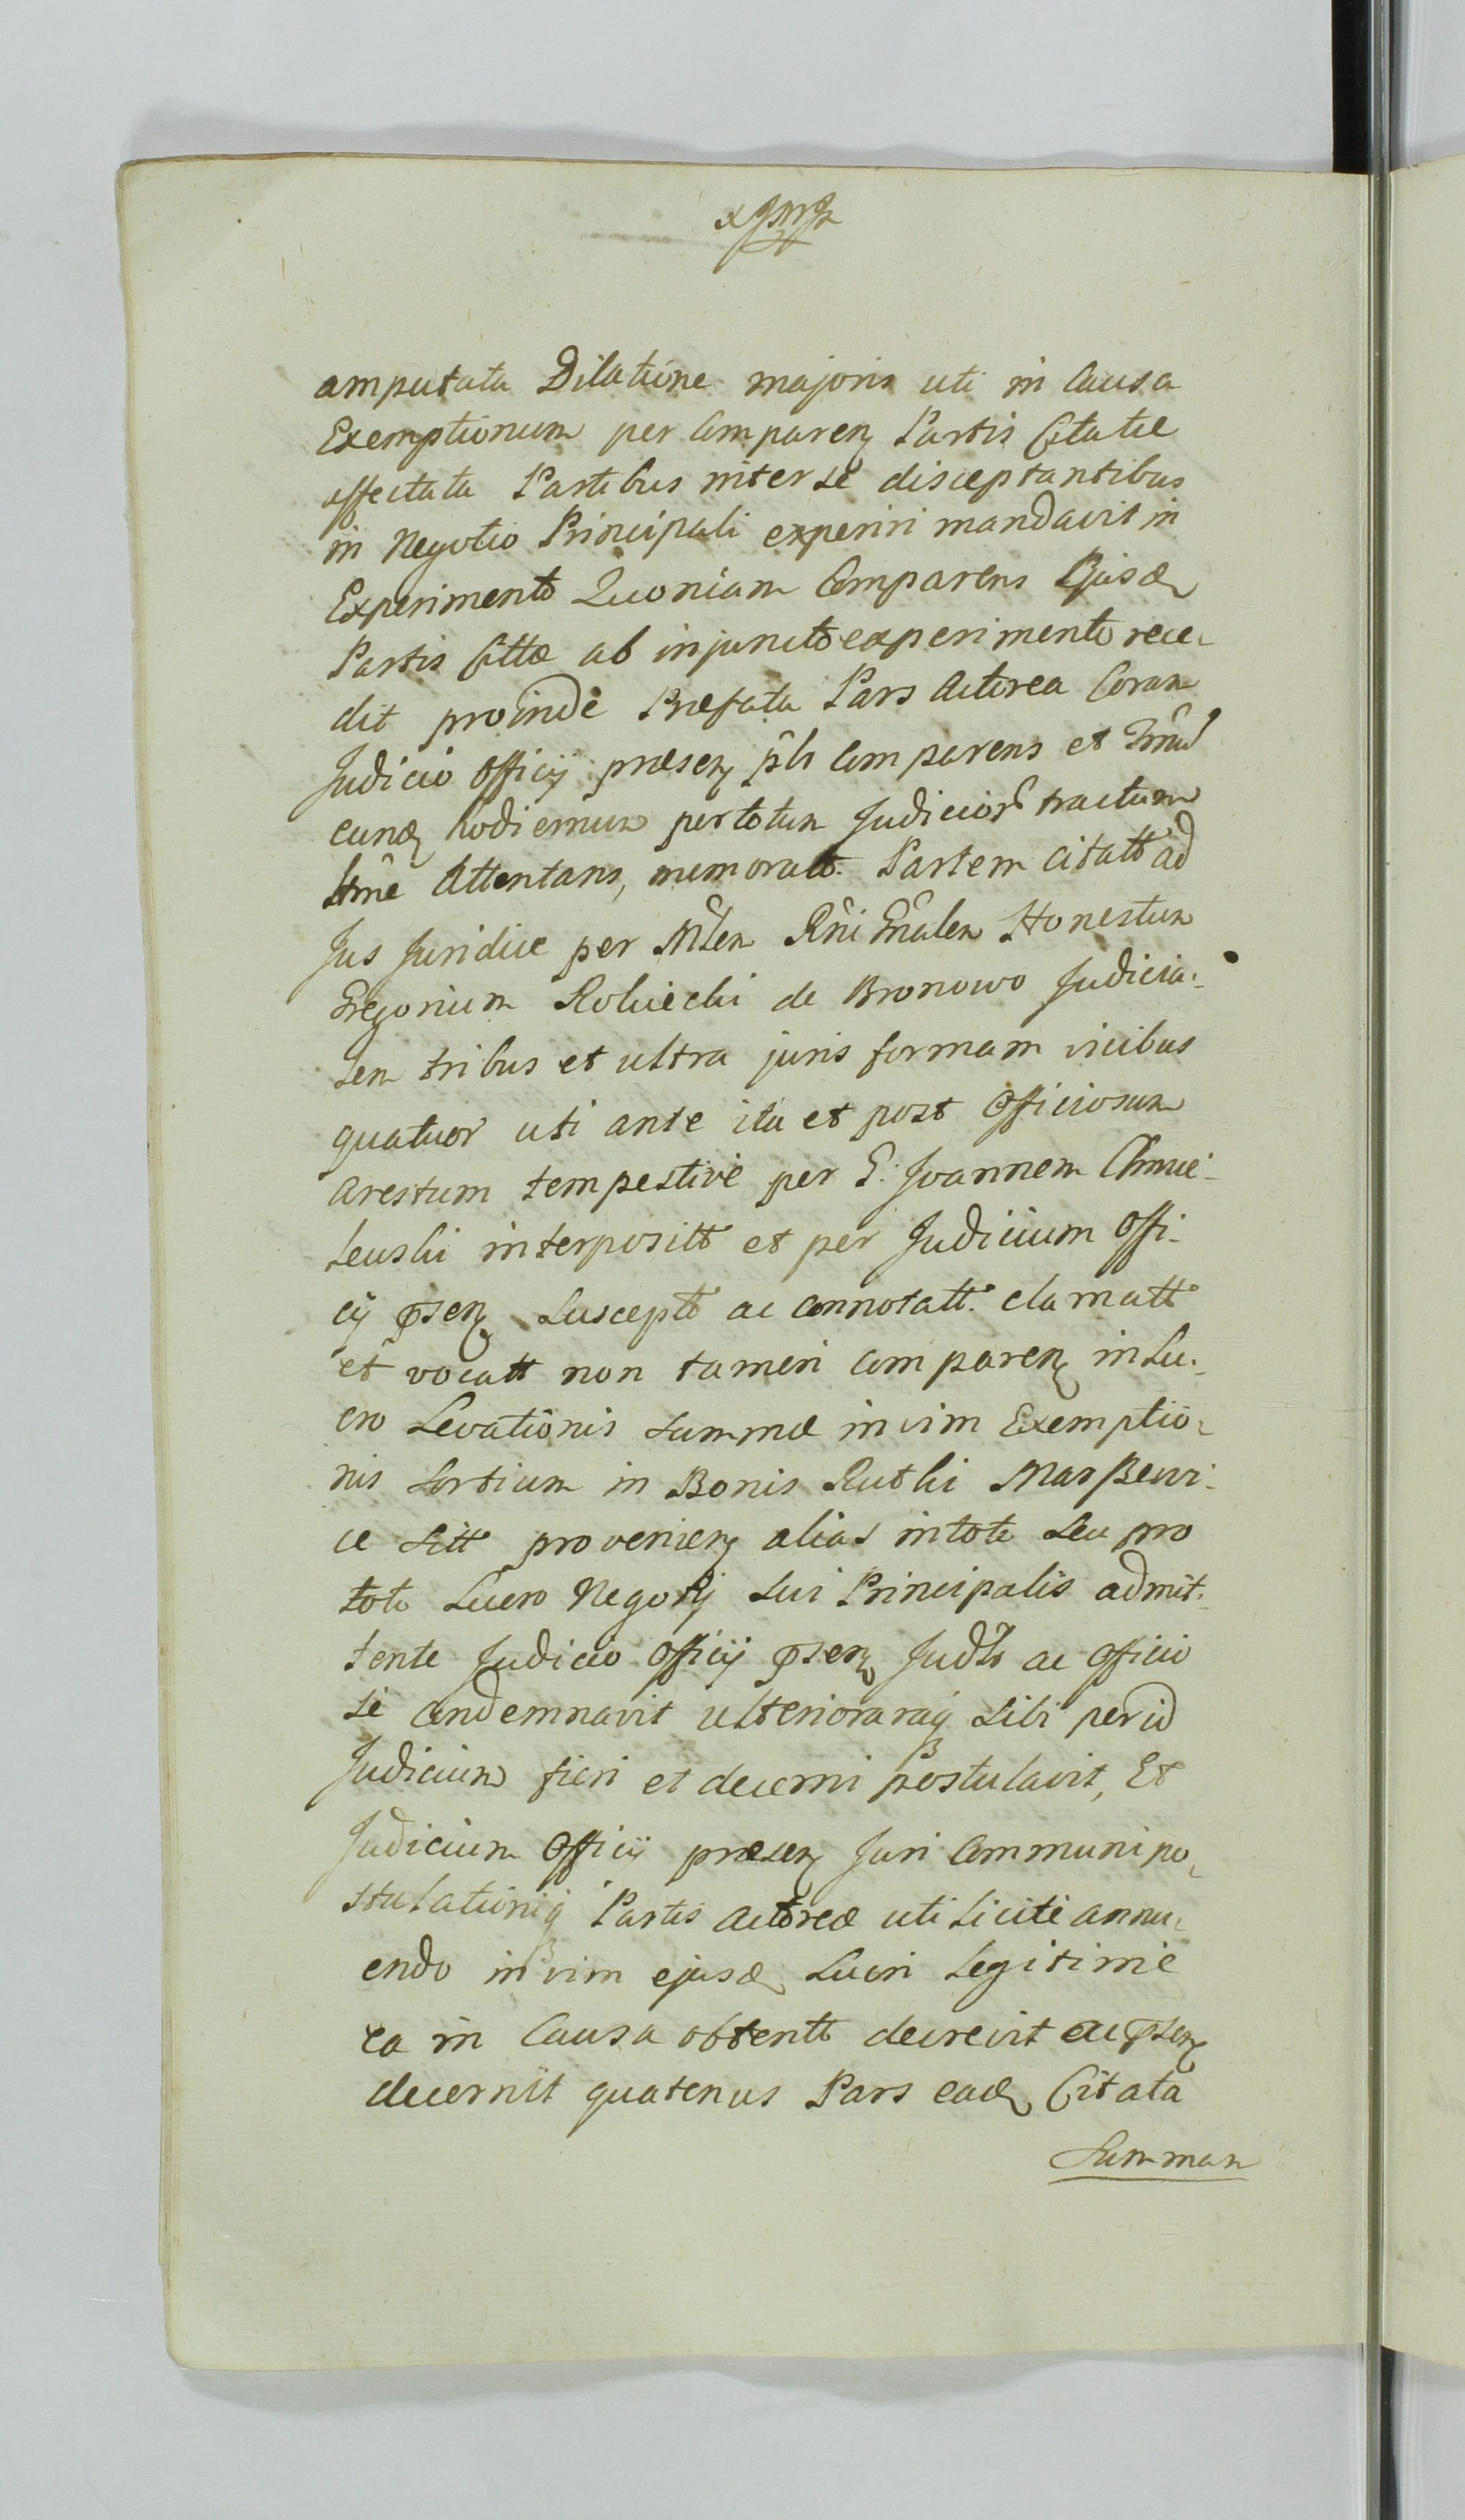 amputata Dilatione majoris uti in Causa
Exemptionum per Comparenȝ Partis Citatæ
affectata Partibus inter se disceptantibus
in Negotio Principali experiri mandavit in
Experimento Quoniam Comparens Ejusd
Partis Cittæ ab injuncto experimento rece-
dit proinde Præfata Pars Actorea Coram
Judicio Officij præsenȝ plr Comparens et
eund hodiernum per totum Judicior tractum
ltme Attentans, memoratt. Partem citatt ad
Jus Juridice per Mlem Rni Gnalem Honestum
Gregorium Robiecki de Bronowo Judicia-
lem tribus et ultra juris formam vicibus
quatuor uti ante ita et post Officiosum
Arestum tempestive per G. Joannem Chmie-
lewski interpositt et per Judicium Offi-
cij psenȝ susceptt ac connotatt. clamatt
et vocatt non tamen comparenȝ in lu-
cro Levationis summæ in vim Exemptio-
nis sortium in Bonis Rutki Marszewi-
ce sitt provenienȝ alias in toto seu pro
toto Lucro Negotij sui Principalis admit-
tente Judicio Officij psenȝ Judtr ac Officio
se condemnavit ulterioraq sibi per id
Judicium fieri et decerni postulavit, Et
Judicium Officij præsenȝ Juri Communi po-
stulationiq Partis Actoreæ uti licite annu-
endo in vim ejusd Lucri Legitime
ea in Causa obtentt decrevit ac psenȝ
decernit quatenus Pars ead Citata
Summam